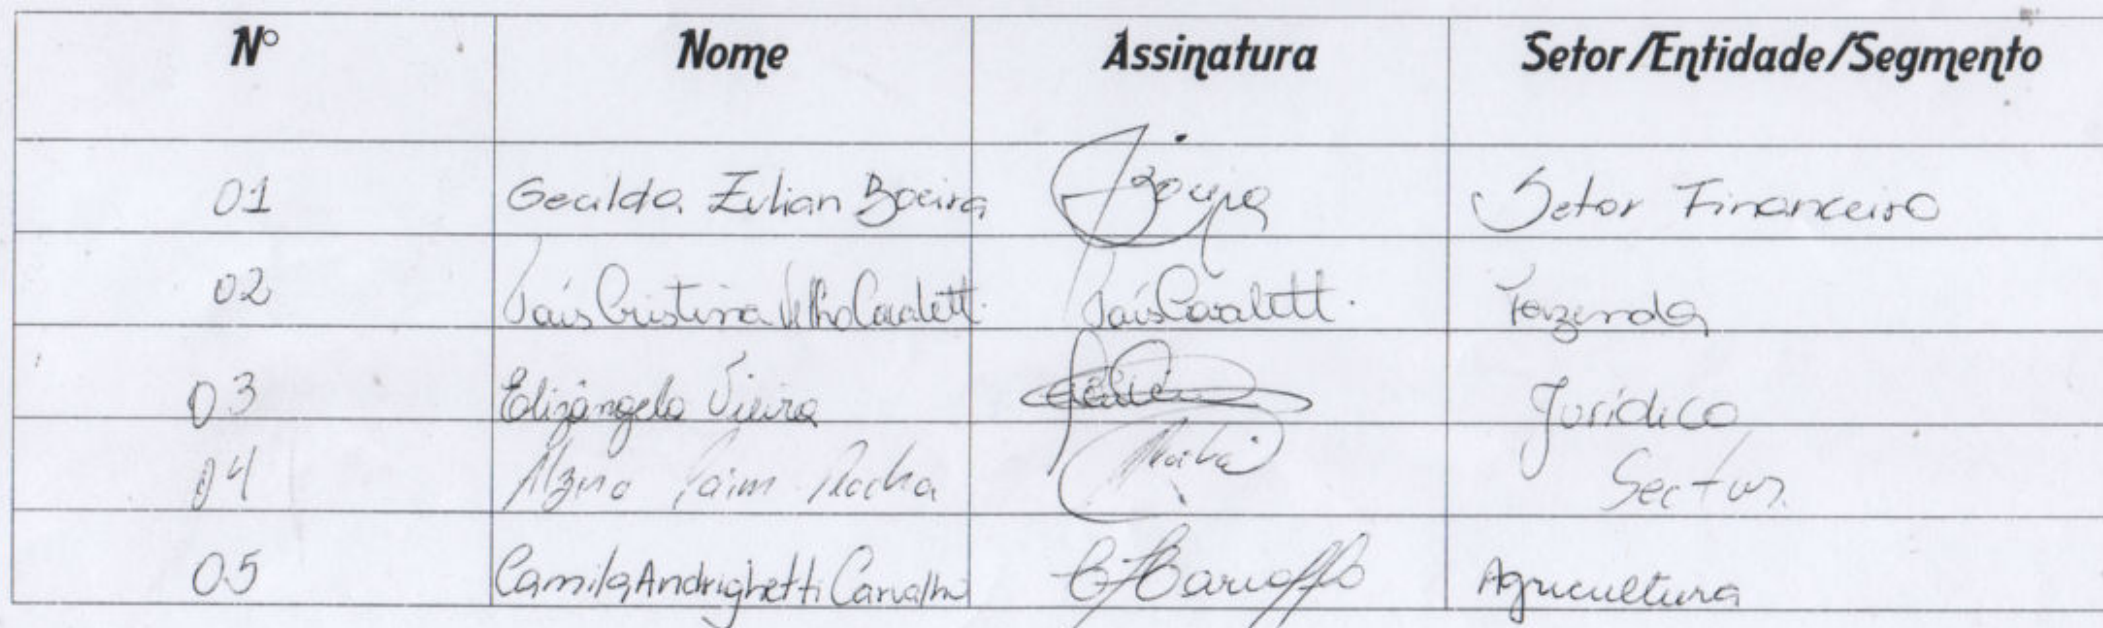 Nº Nome Assinatura Setor/Entidade/Segmento
01 Gecilda Zulian Boeira Boeira Setor Financeiro
02 Taís Cristina Velho Cavalett. Taís Cavalett. Fazenda
03 Elizângela Vieira Jurídico
04 Paim Rocha Rocha
05 Camila Andrighetti Carvalho Agricultura